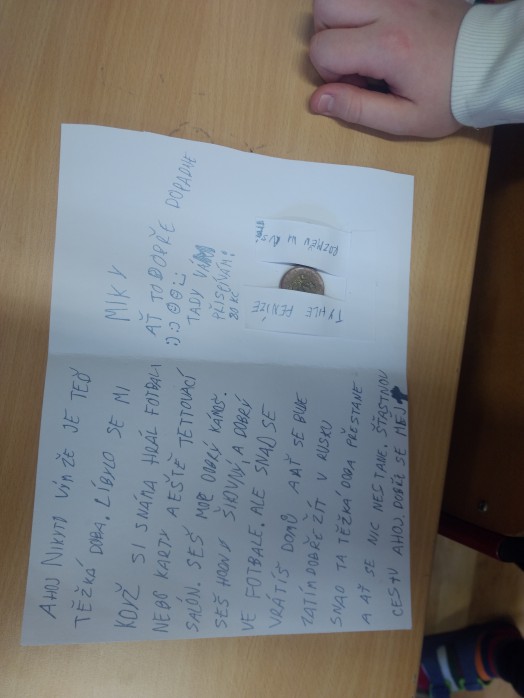 AHOJ NIKITO VÍM ŽE JE TEĎ
TĚŽKÁ DOBA, LÍBYLO SE MI
KDYŽ SI SNÁMA HRÁL FOTBAL
NEBO KARTY AEŠTĚ TETTOVACÍ
SALÓN. SEŠ MOC DOBRÝ KÁMOŠ.
SEŠ HODNĚ ŠIKOVNÍ A DOBRÝ
VE FOTBALE. ALE SNAD SE
VRÁTÍŠ DOMŮ A AŤ SE BUDE
ZATÍM DOBŘE ŽÍT V RUSKU
SNAD TA TĚŽKÁ DOBA PŘESTANE
A AŤ SE NIC NESTANE. ŠŤASTNOU
CESTU AHOJ DOBŘE SE MĚJ
MIKY
AŤ TO DOPŘE DOPADNE
TADY VÁM
PŘISPÍVÁM:
20 KČ
TYHLE PENÍZE
ROZMĚŇ